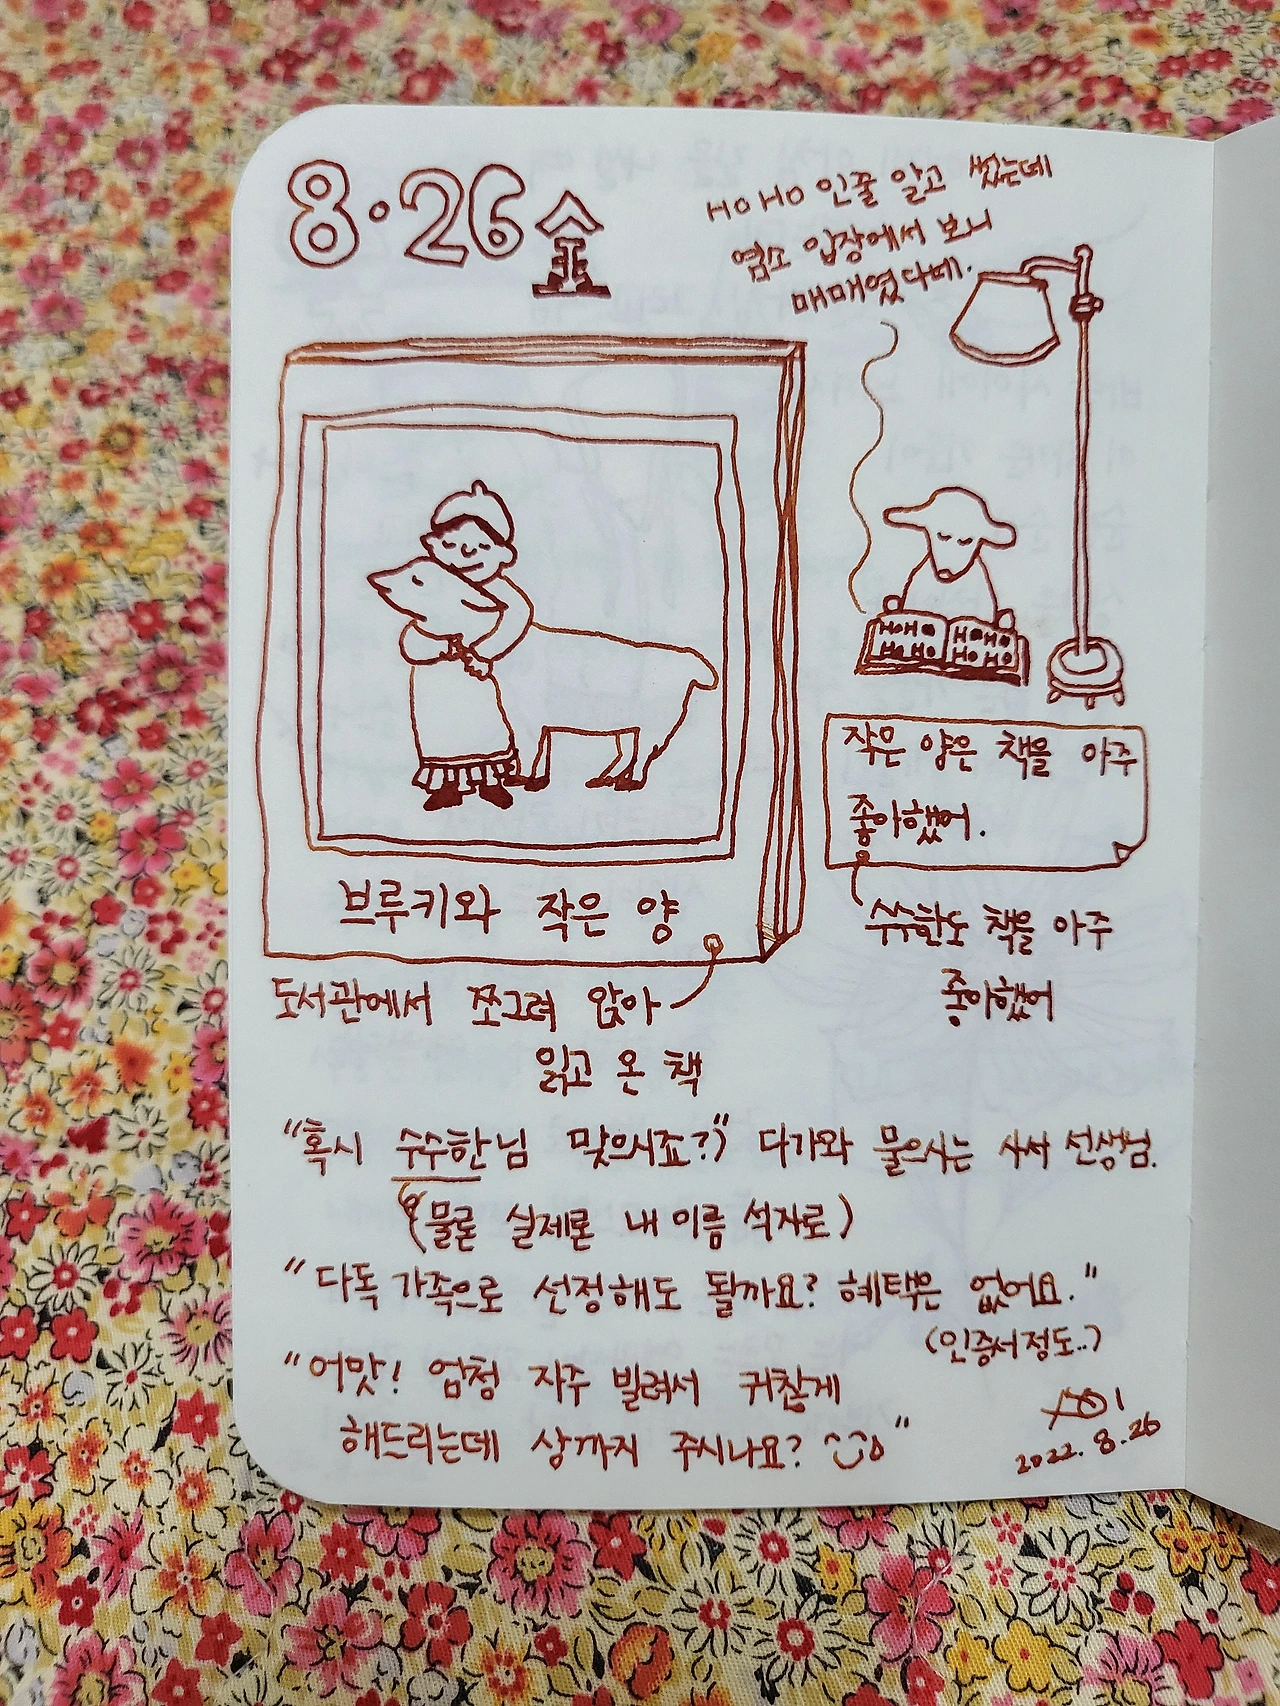 8·26 金
HOHO 인줄 알고 썼는데
염소 입장에서 보니
매매였다메.
HoHo HoHo
HoHo HoHo
작은 양은 책을 아주
좋아했어.
수수한도 책을 아주
좋아했어
브루키와 작은 양
도서관에서 쪼그려 앉아
읽고 온 책
“혹시 수수한님 맞으시죠?” 다가와 물으시는 사서 선생님.
(물론 실제론 내 이름 석자로)
“다독 가족으로 선정해도 될까요? 혜택은 없어요.”
(인증서정도..)
“어맛! 엄청 자주 빌려서 귀찮게
해드리는데 상까지 주시나요? ”
2022. 8. 26